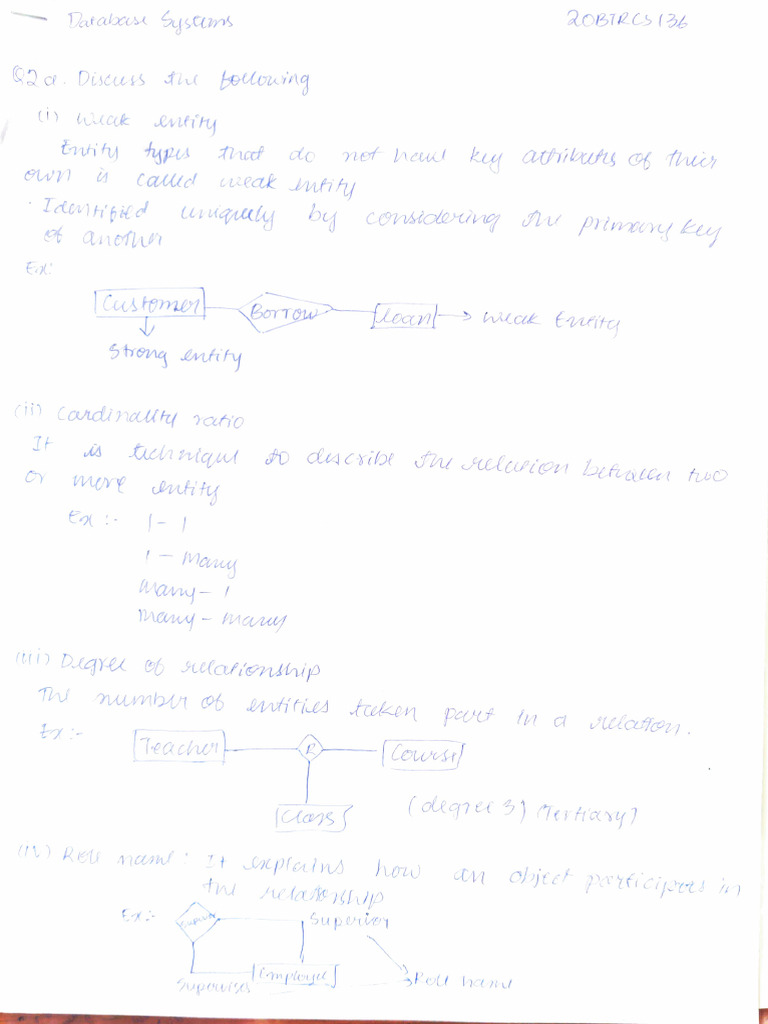 Database Systems 20BTRCS136
Q2a. Discuss the following
(i) weak entity
Entity types that do not have key attributes of their
own is called weak entity
· Identified uniquely by considering the primary key
of another
Ex:
Customer Borrow loan → weak Entity
Strong entity
(ii) Cardinality ratio
It is technique to describe the relation between two
or more entity
Ex :- 1 - 1
1 - Many
Many - 1
Many - many
(iii) Degree of relationship
The number of entities taken part in a relation.
Ex :- Teacher R Course
Class (degree 3) (Tertiary)
(iv) Role name : It explains how an object participes in
the relationship
Ex :- Supervior
Employee Role name
Supervises